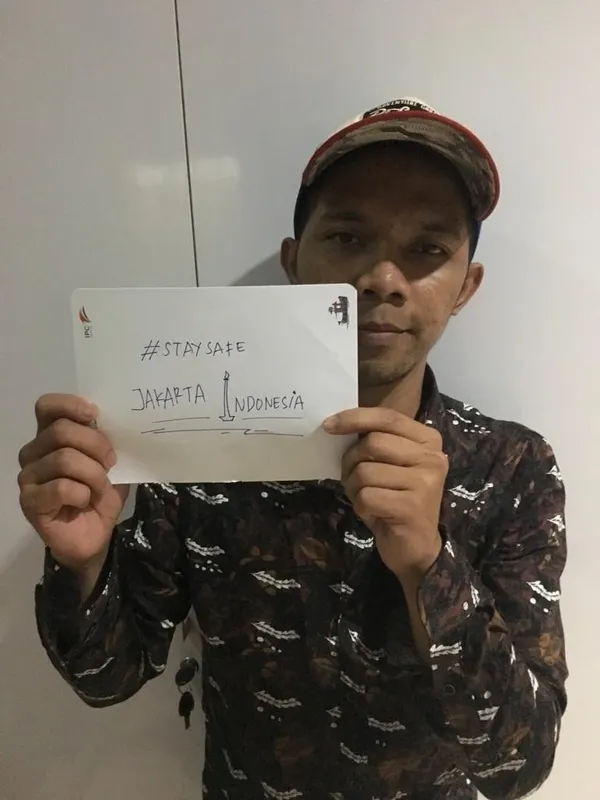 #STAYSAFE
JAKARTA INDONESIA
IPC